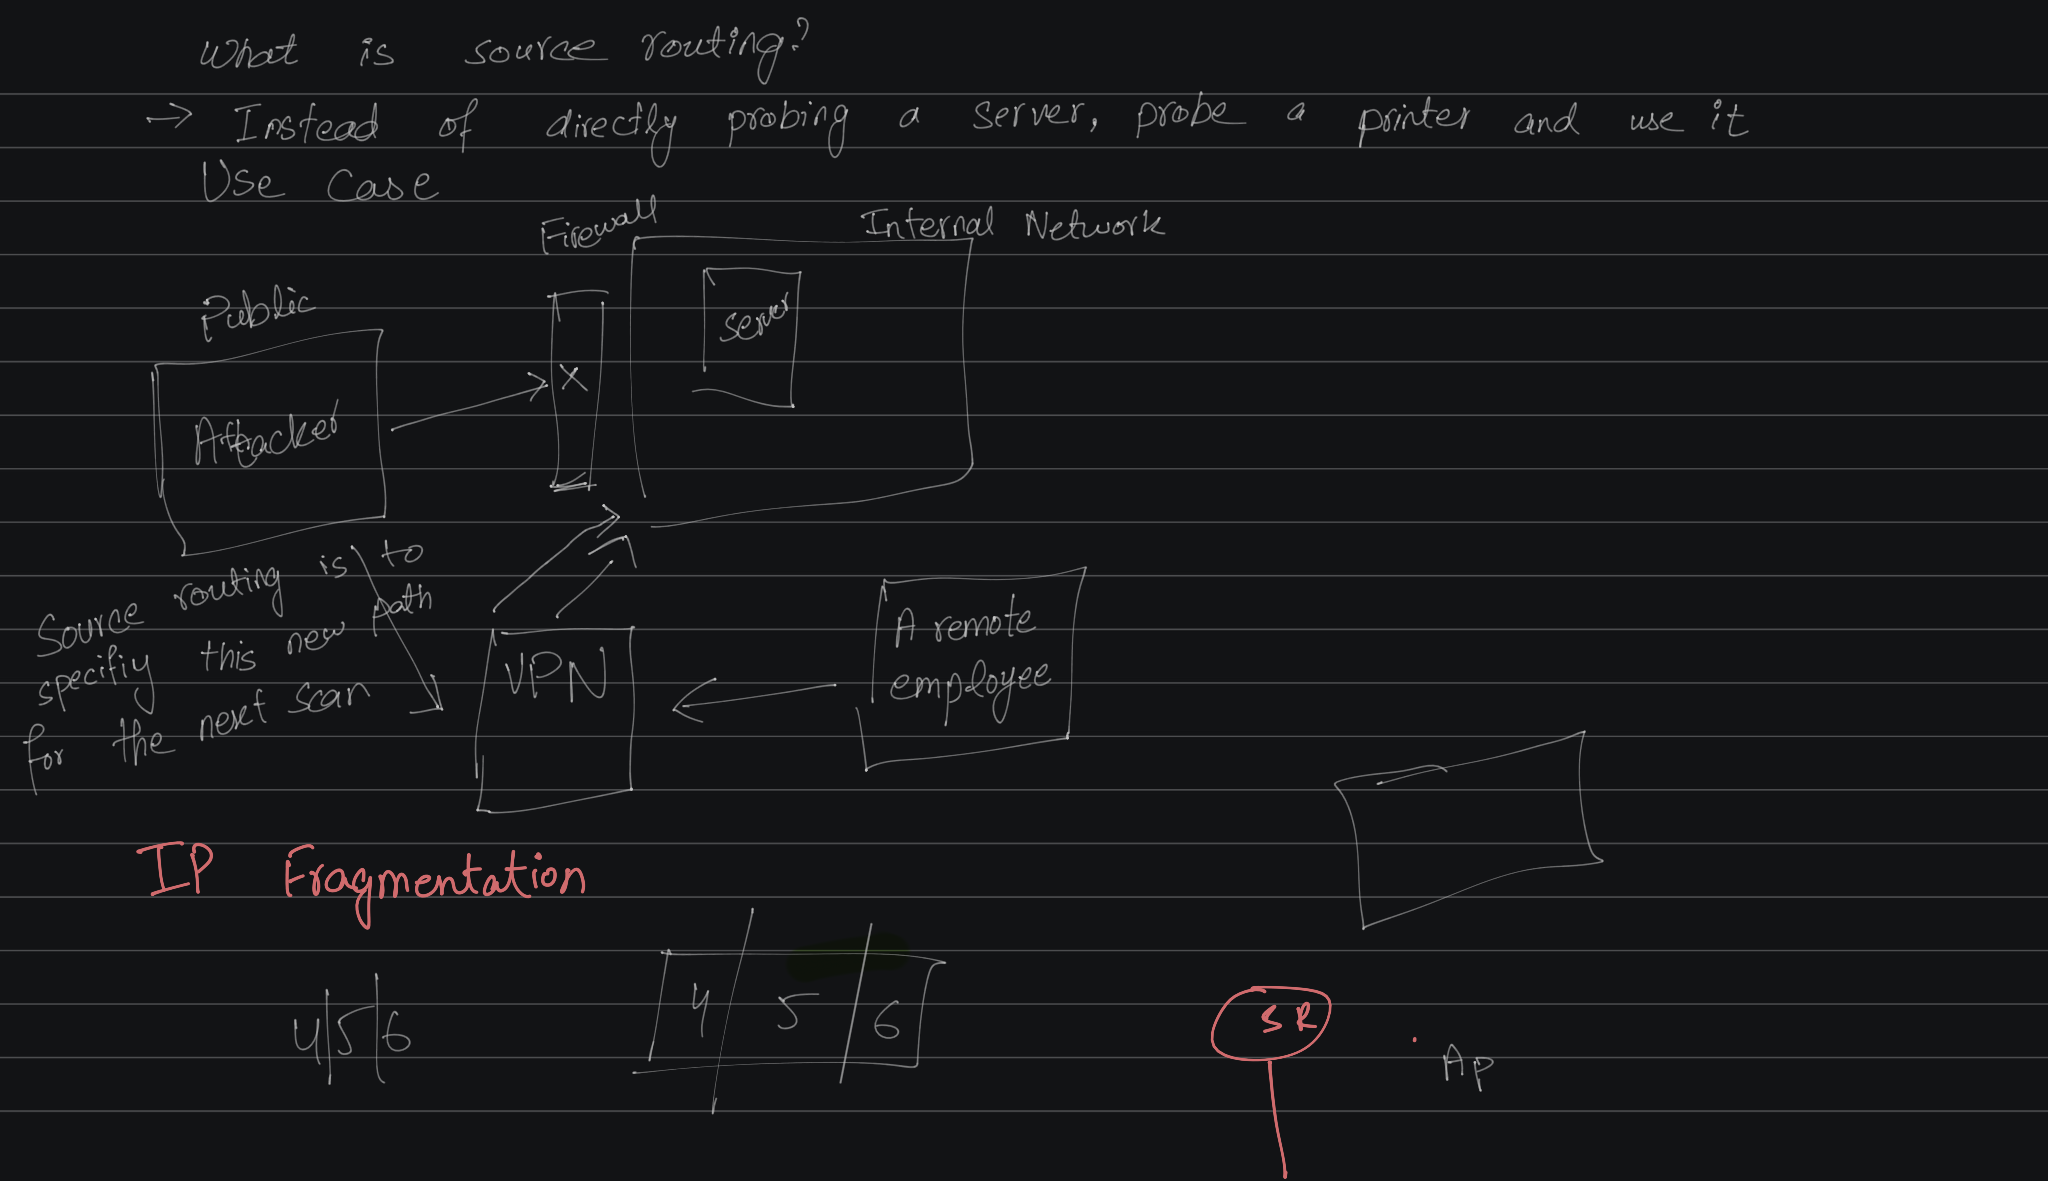 What is source routing?
→ Instead of directly probing a server, probe a printer and use it
Use Case
Firewall
Internal Network
Public
Server
X
Attacker
Source routing is to
specifiy this new path
for the next scan
VPN
A remote
employee
IP Fragmentation
4|5|6
4 5 6
SR
Ap